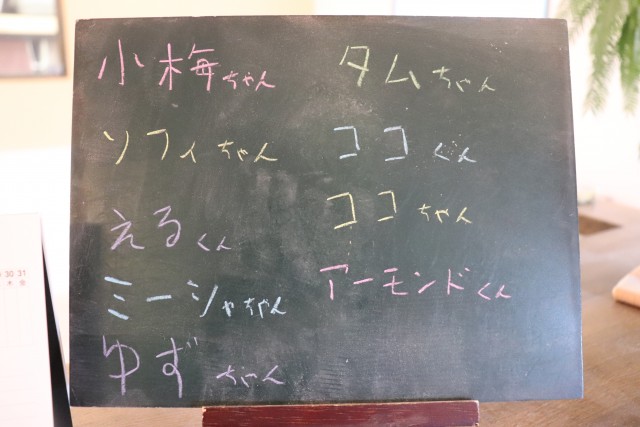 小梅ちゃん
ソフィちゃん
えるくん
ミーシャちゃん
ゆずちゃん
タムちゃん
ココくん
ココちゃん
アーモンドくん
30 31